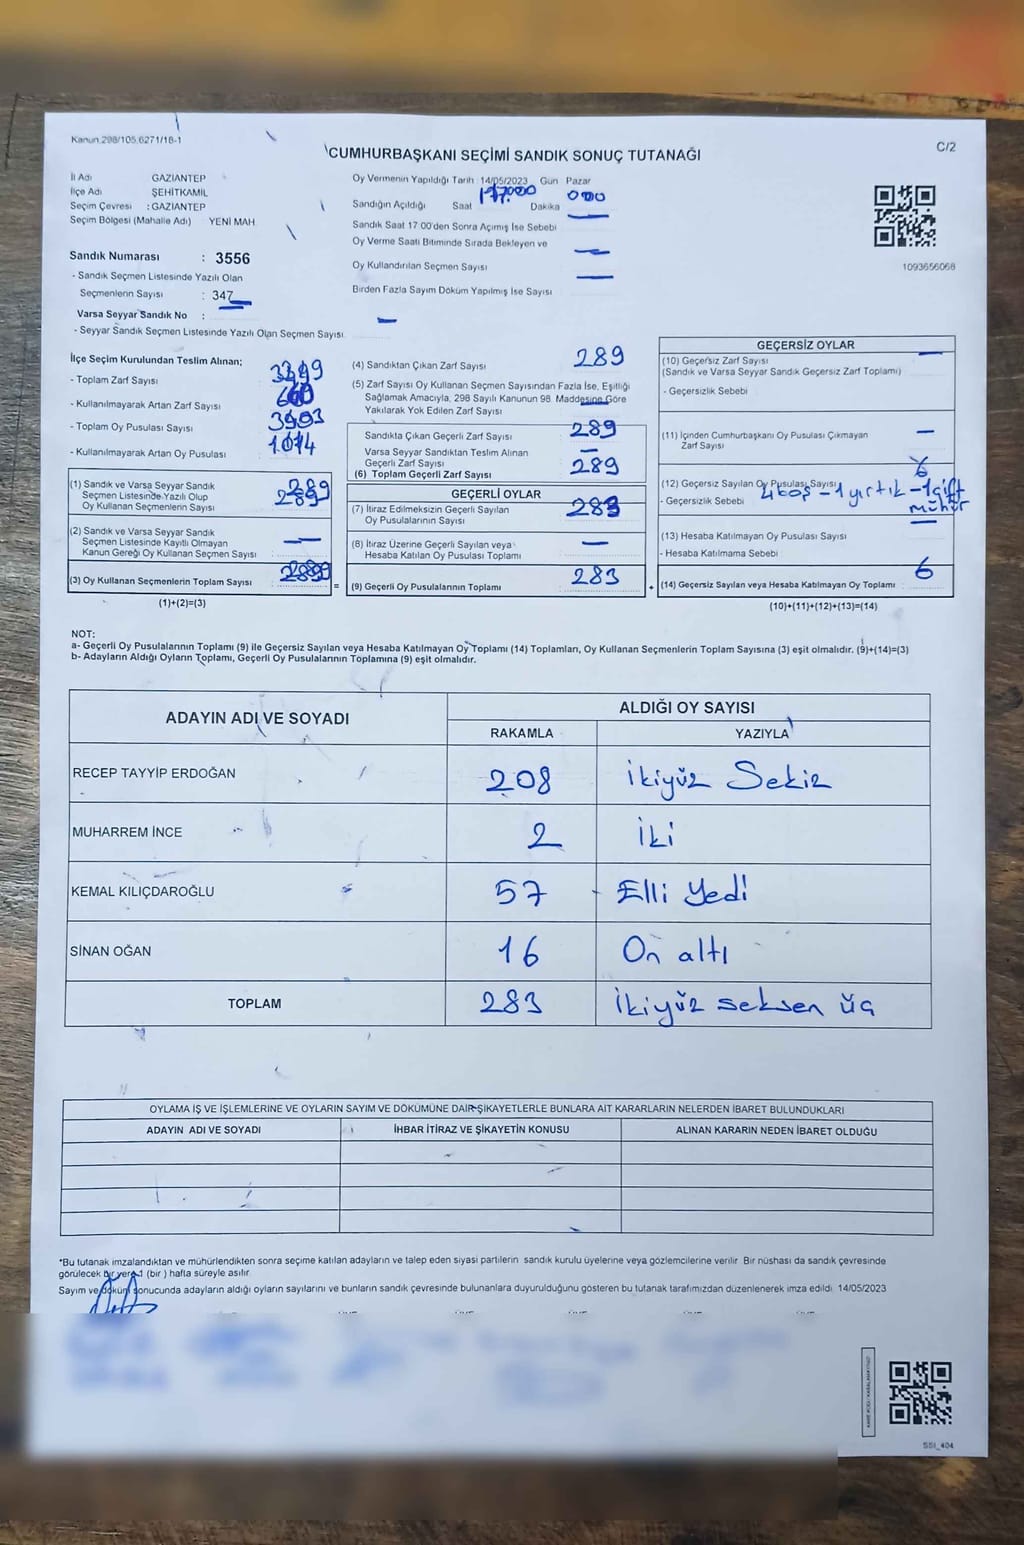 Kanun 298/105,6271/18-1
C/2
CUMHURBAŞKANI SEÇİMİ SANDIK SONUÇ TUTANAĞI
İl Adı GAZIANTEP
İlçe Adı ŞEHİTKAMİL
Seçim Çevresi : GAZIANTEP
Seçim Bölgesi (Mahalle Adı) YENİ MAH.
Sandık Numarası : 3556
- Sandık Seçmen Listesinde Yazılı Olan
Seçmenlerin Sayısı : 347
Varsa Seyyar Sandık No :
- Seyyar Sandık Seçmen Listesinde Yazılı Olan Seçmen Sayısı
Oy Vermenin Yapıldığı Tarih 14/05/2023 Gün Pazar
Sandığın Açıldığı Saat Dakika
Sandık Saat 17:00'den Sonra Açımış İse Sebebi
Oy Verme Saati Bitiminde Sırada Bekleyen ve
Oy Kullandırılan Seçmen Sayısı
Birden Fazla Sayım Döküm Yapılmış İse Sayısı
1093656068
İlçe Seçim Kurulundan Teslim Alınan;
- Toplam Zarf Sayısı
- Kullanılmayarak Artan Zarf Sayısı
- Toplam Oy Pusulası Sayısı
- Kullanılmayarak Artan Oy Pusulası
(1) Sandık ve Varsa Seyyar Sandık
Seçmen Listesinde Yazılı Olup
Oy Kullanan Seçmenlerin Sayısı 289
(2) Sandık ve Varsa Seyyar Sandık
Seçmen Listesinde Kayıtlı Olmayan
Kanun Gereği Oy Kullanan Seçmen Sayısı —
(3) Oy Kullanan Seçmenlerin Toplam Sayısı =
(1)+(2)=(3)
(4) Sandıktan Çıkan Zarf Sayısı 289
(5) Zarf Sayısı Oy Kullanan Seçmen Sayısından Fazla İse, Eşitliği
Sağlamak Amacıyla, 298 Sayılı Kanunun 98. Maddesine Göre
Yakılarak Yok Edilen Zarf Sayısı
Sandıkta Çıkan Geçerli Zarf Sayısı 289
Varsa Seyyar Sandıktan Teslim Alınan
Geçerli Zarf Sayısı —
(6) Toplam Geçerli Zarf Sayısı 289
GEÇERLİ OYLAR
(7) İtiraz Edilmeksizin Geçerli Sayılan
Oy Pusulalarının Sayısı 283
(8) İtiraz Üzerine Geçerli Sayılan veya
Hesaba Katılan Oy Pusulası Toplamı —
(9) Geçerli Oy Pusulalarının Toplamı 283 +
GEÇERSİZ OYLAR
(10) Geçersiz Zarf Sayısı —
(Sandık ve Varsa Seyyar Sandık Geçersiz Zarf Toplamı)
- Geçersizlik Sebebi
(11) İçinden Cumhurbaşkanı Oy Pusulası Çıkmayan
Zarf Sayısı —
(12) Geçersiz Sayılan Oy Pusulası Sayısı 6
- Geçersizlik Sebebi 4 boş - 1 yırtık - 1 çift
mühür
(13) Hesaba Katılmayan Oy Pusulası Sayısı —
- Hesaba Katılmama Sebebi
(14) Geçersiz Sayılan veya Hesaba Katılmayan Oy Toplamı 6
(10)+(11)+(12)+(13)=(14)
NOT:
a- Geçerli Oy Pusulalarının Toplamı (9) ile Geçersiz Sayılan veya Hesaba Katılmayan Oy Toplamı (14) Toplamları, Oy Kullanan Seçmenlerin Toplam Sayısına (3) eşit olmalıdır. (9)+(14)=(3)
b- Adayların Aldığı Oyların Toplamı, Geçerli Oy Pusulalarının Toplamına (9) eşit olmalıdır.
ADAYIN ADI VE SOYADI
ALDIĞI OY SAYISI
RAKAMLA YAZIYLA
RECEP TAYYİP ERDOĞAN 208 ikiyüz Sekiz
MUHARREM İNCE 2 İki
KEMAL KILIÇDAROĞLU 57 Elli Yedi
SİNAN OĞAN 16 On altı
TOPLAM 283 ikiyüz seksen üç
OYLAMA İŞ VE İŞLEMLERİNE VE OYLARIN SAYIM VE DÖKÜMÜNE DAİR ŞİKAYETLERLE BUNLARA AİT KARARLARIN NELERDEN İBARET BULUNDUKLARI
ADAYIN ADI VE SOYADI İHBAR İTİRAZ VE ŞİKAYETİN KONUSU ALINAN KARARIN NEDEN İBARET OLDUĞU
*Bu tutanak imzalandıktan ve mühürlendikten sonra seçime katılan adayların ve talep eden siyasi partilerin sandık kurulu üyelerine veya gözlemcilerine verilir. Bir nüshası da sandık çevresinde
görülecek bir yere 1 (bir) hafta süreyle asılır.
Sayım ve döküm sonucunda adayların aldığı oyların sayılarını ve bunların sandık çevresinde bulunanlara duyurulduğunu gösteren bu tutanak tarafımızdan düzenlenerek imza edildi. 14/05/2023
SSI_404